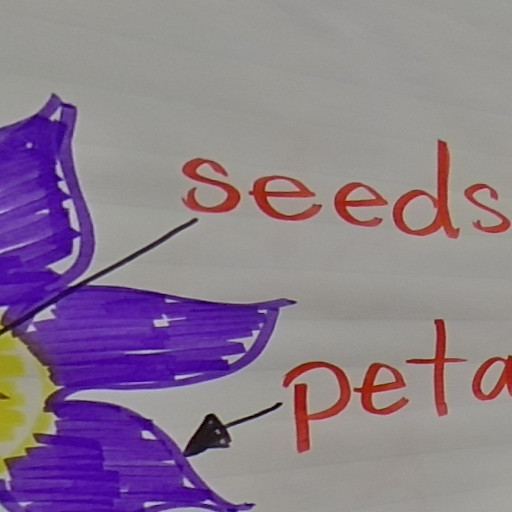 seeds
peta